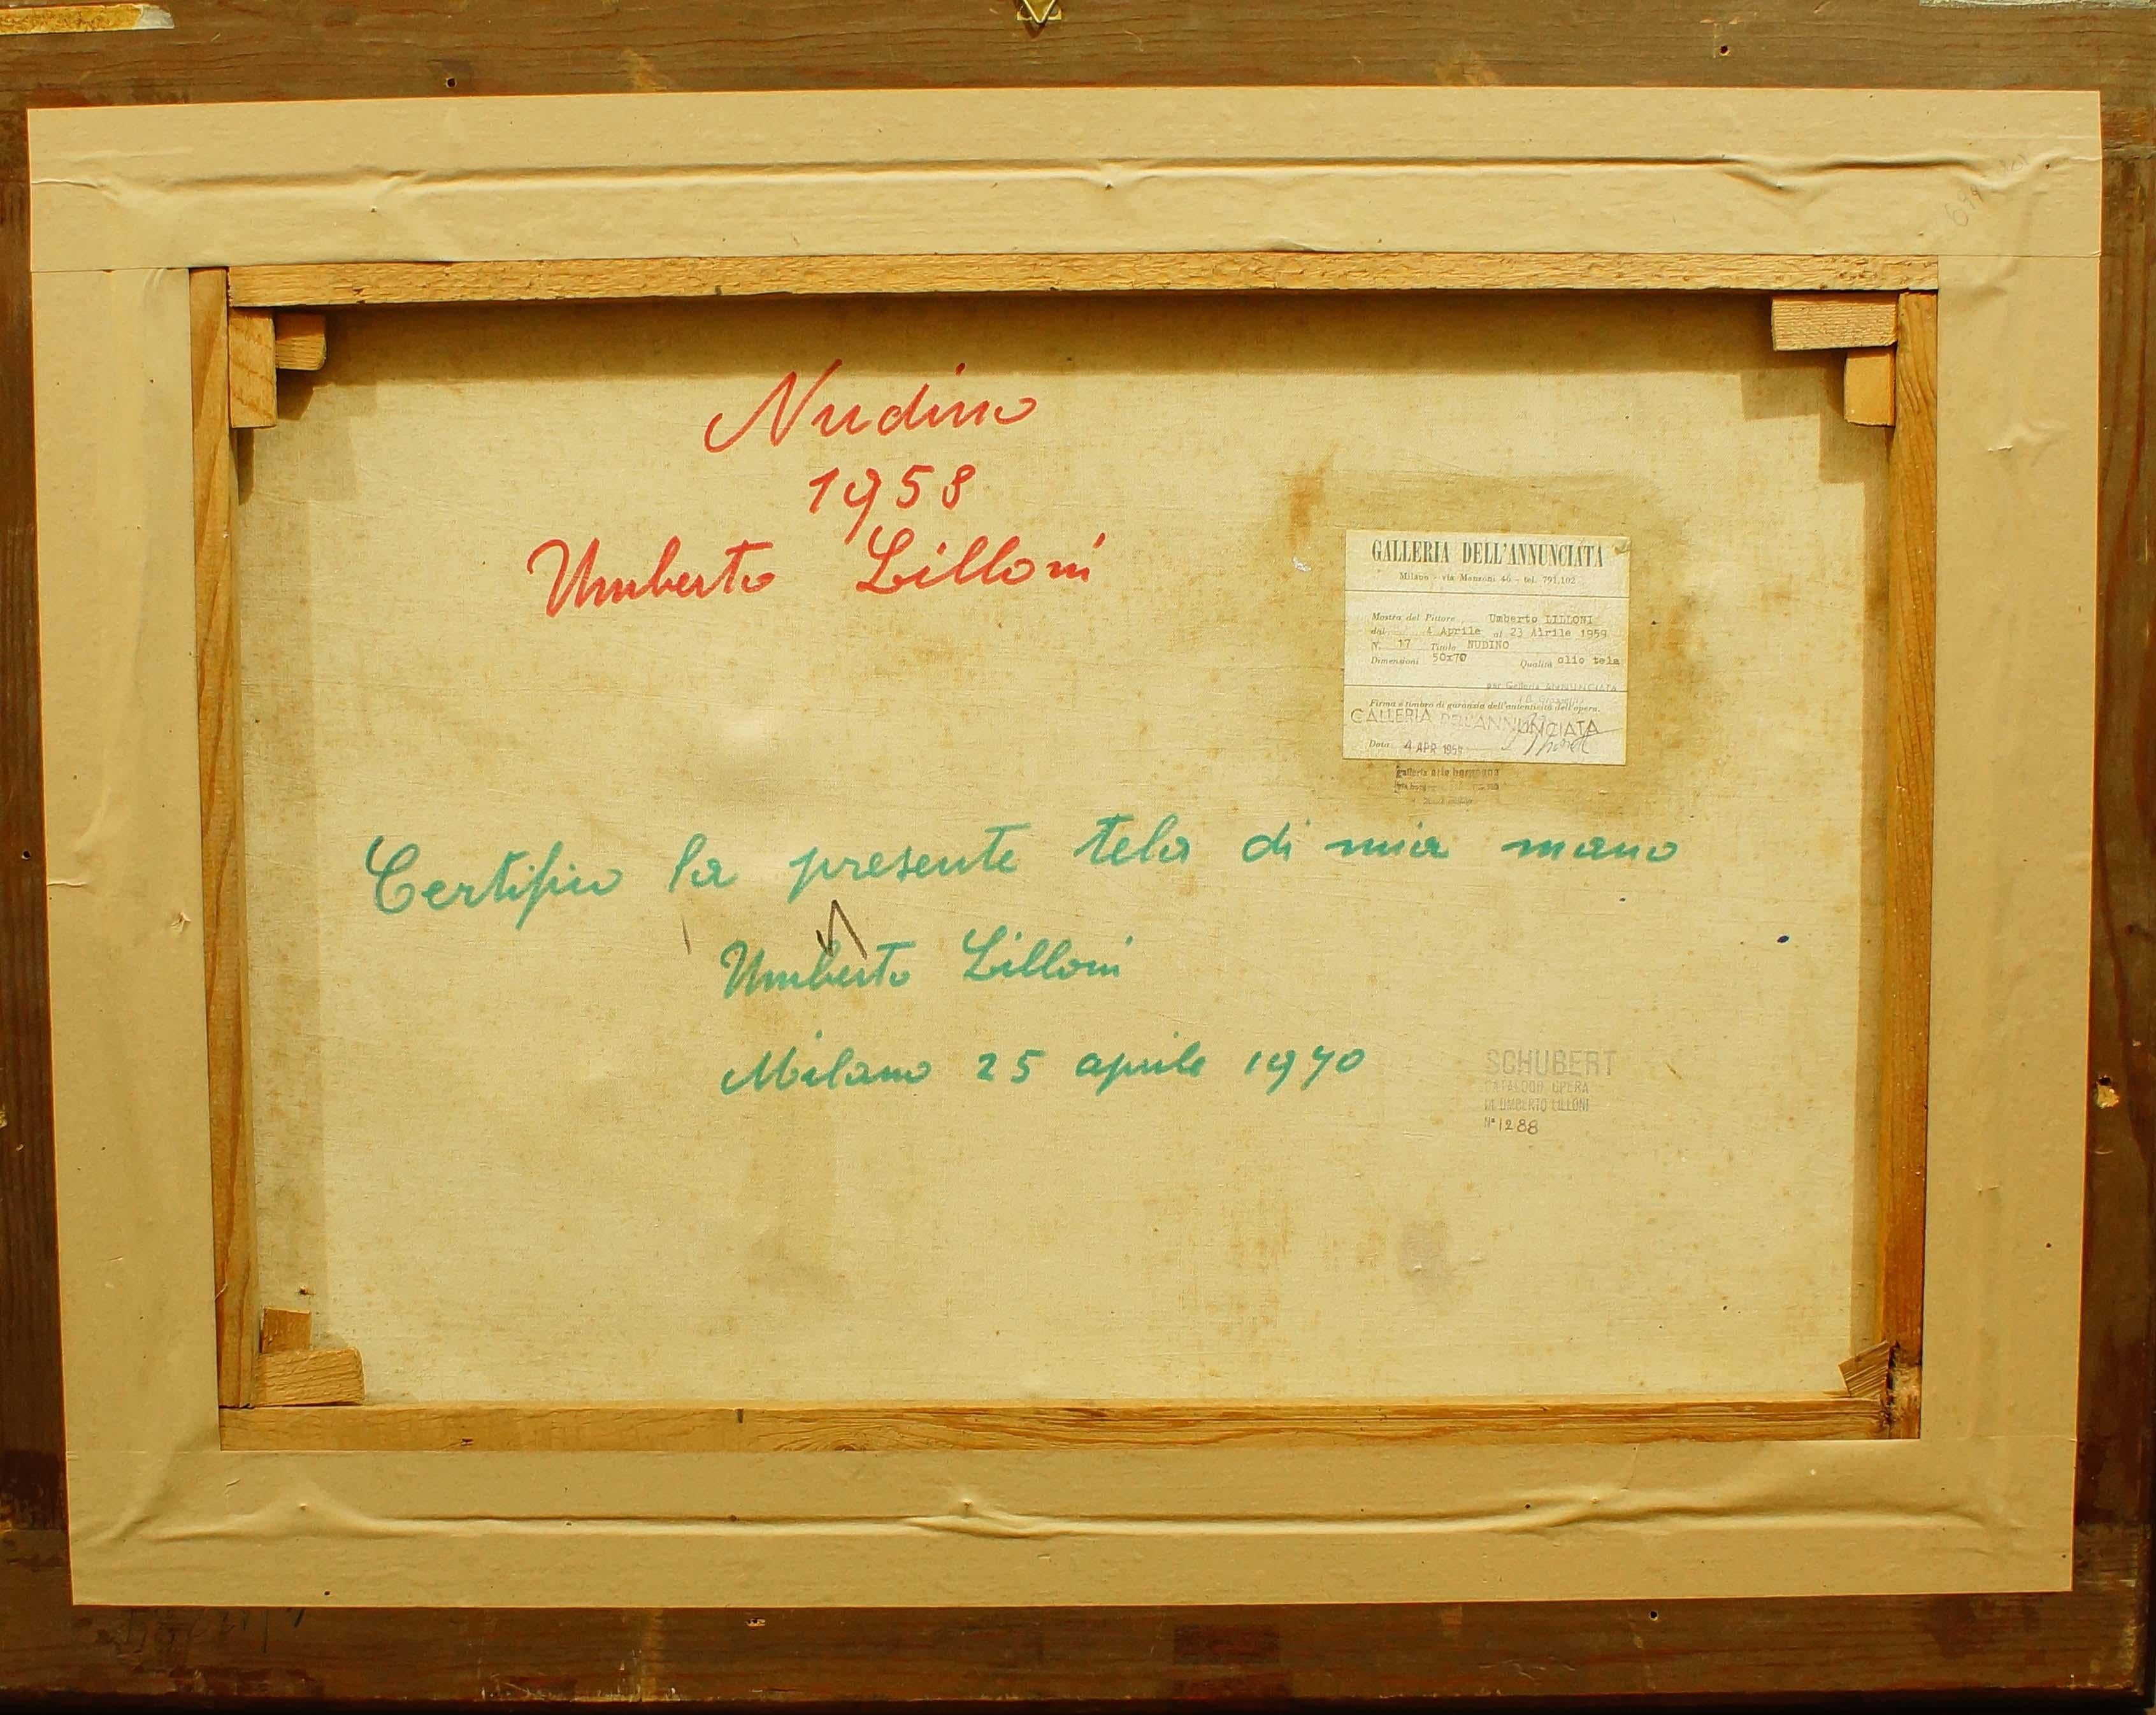 Nudino
1958
Umberto Lilloni
GALLERIA DELL'ANNUNCIATA
Milano - via Manzoni 46 - tel. 791.102
Mostra del Pittore Umberto LILLONI
dal 4 Aprile al 23 Airile 1959
N. 17 Titolo NUDINO
Dimensioni 50x70 Qualità olio tela
per Galleria ANNUNCIATA
Firma e timbro di garanzia dell'autenticità dell'opera.
GALLERIA DELL'ANNUNCIATA
Data 4 APR 1959
galleria arte
Certifico la presente tela di mia mano
Umberto Lilloni
Milano 25 aprile 1970
SCHUBERT
CATALOGO OPERA
DI UMBERTO LILLONI
N° 1288